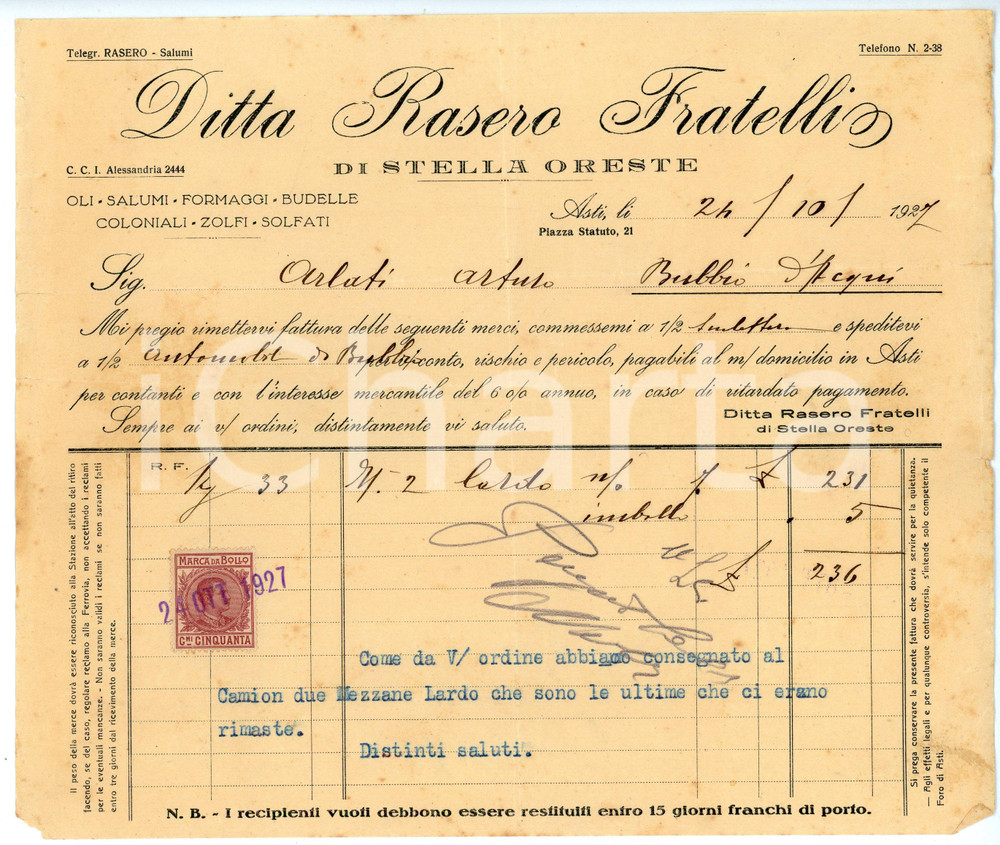 Telegr. RASERO - Salumi
Telefono N. 2-38
Ditta Rasero Fratelli
DI STELLA ORESTE
C. C. I. Alessandria 2444
OLI - SALUMI - FORMAGGI - BUDELLE
COLONIALI - ZOLFI - SOLFATI
Asti, li 24 / 10 / 1927
Piazza Statuto, 21
Sig. Arlati Arturo Bubbio d'Acqui
Mi pregio rimettervi fattura delle seguenti merci, commessemi a 1/2 e speditevi
a 1/2 di Bubbio conto, rischio e pericolo, pagabili al m/ domicilio in Asti
per contanti e con l'interesse mercantile del 6 o/o annuo, in caso di ritardato pagamento.
Sempre ai v/ ordini, distintamente vi saluto.
Ditta Rasero Fratelli
di Stella Oreste
R. F.
Kg 33 N. 2 Lardo n/s 7. £ 231
imballo . 5
£ 236
MARCA DA BOLLO
24 OTT 1927
Cmi CINQUANTA
Come da V/ ordine abbiamo consegnato al
Camion due Mezzane Lardo che sono le ultime che ci erano
rimaste.
Distinti saluti.
Il peso della merce dovrà essere riconosciuto alla Stazione all'atto del ritiro
facendo, se del caso, regolare reclamo alla Ferrovia, non accettando i reclami
per le eventuali mancanze. - Non saranno validi i reclami se non saranno fatti
entro tre giorni dal ricevimento della merce.
Si prega conservare la presente fattura che dovrà servire per la quietanza.
— Agli effetti legali e per qualunque controversia, s'intende solo competente il
Foro di Asti.
N. B. - I recipienti vuoti debbono essere restituiti entro 15 giorni franchi di porto.
iCharta